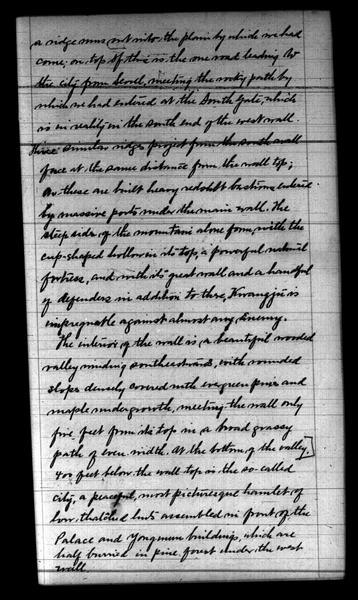 a ridge runs out into the plain by which we had
come; on top of this is the one road leading to
the city from Seoul, meeting the rocky path by
which we had entered at the South Gate, which
is in reality in the south end of the west wall.
Three similar ridges project from the south wall
face at the same distance from the wall top;
on these are built heavy redoubt bastions entered
by massive ports under the main wall. The
steep sides of the mountain alone form, with the
cup-shaped hollow in its top, a powerful natural
fortress, and with its great wall and a handful
of defenders in addition to these, Kwangju is
impregnable against almost any enemy.
The interior of the wall is a beautiful wooded
valley winding southeastward, with rounded
slopes densely covered with evergreen pines and
maple undergrowth, meeting the wall only
five feet from its top in a broad grassy
path of even width. At the bottom of the valley,
400 feet below the wall top is the so-called
city, a peaceful, most picturesque hamlet of
low, thatched huts assembled in front of the
Palace and Yongmun buildings, which are
half buried in pine forest under the west
wall.